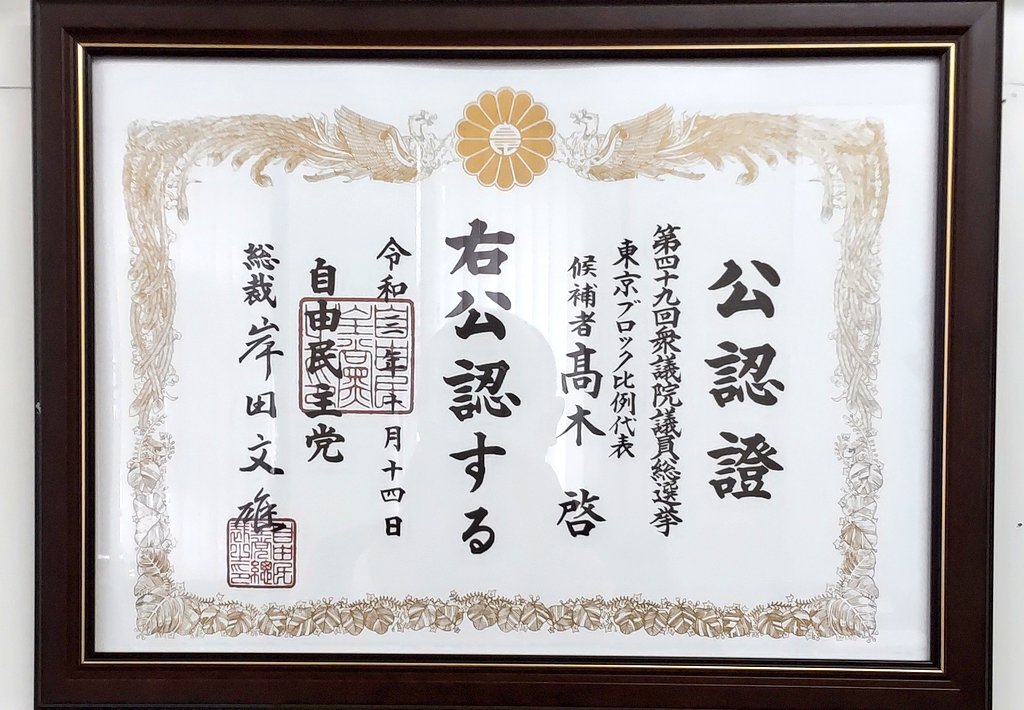 公認證
第四十九回衆議院議員総選挙
東京ブロック比例代表
候補者髙木 啓
右公認する
令和三年十月十四日
自由民主党
総裁 岸田文雄